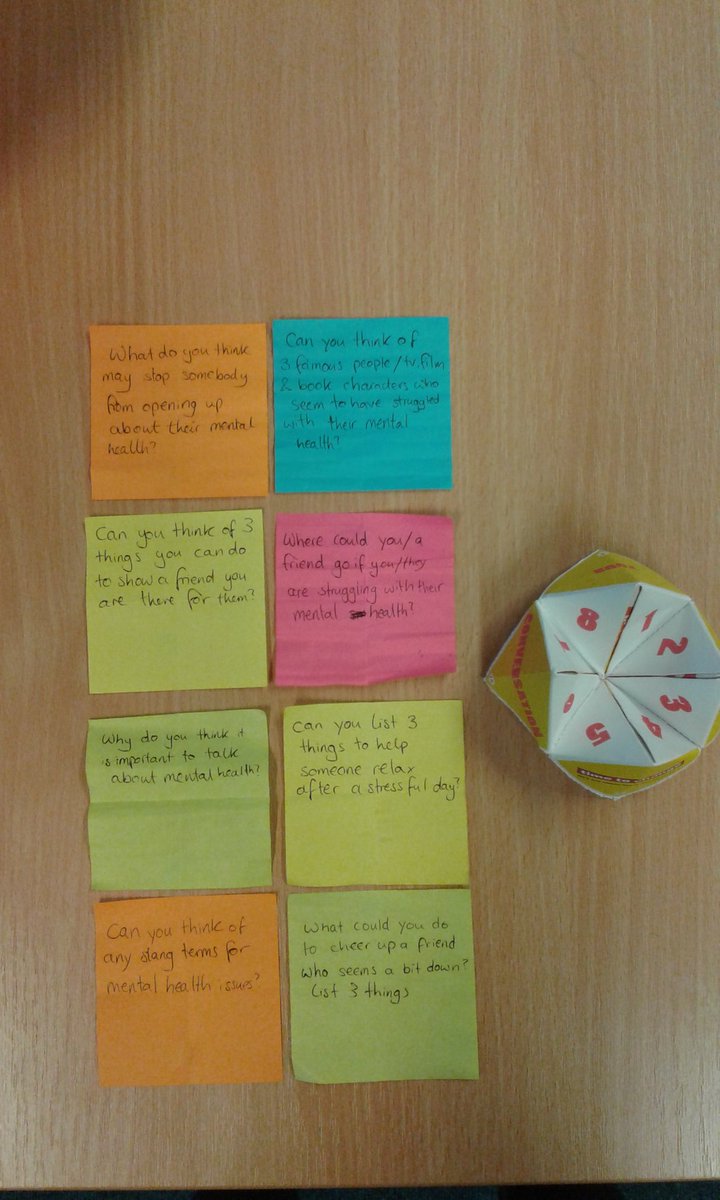 What do you think
may stop somebody
from opening up
about their mental
health?
Can you think of
3 famous people/tv, film
& book characters who
seem to have struggled
with their mental
health?
Can you think of 3
things you can do
to show a friend you
are there for them?
Where could you/a
friend go if you/they
are struggling with their
mental health?
Why do you think it
is important to talk
about mental health?
Can you list 3
things to help
someone relax
after a stressful day?
Can you think of
any slang terms for
mental health issues?
What could you do
to cheer up a friend
who seems a bit down?
List 3 things
CONVERSATION
8
1
2
3
4
5
time to change